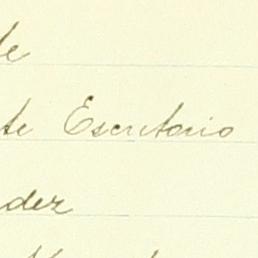 de
te Escritorio
dez